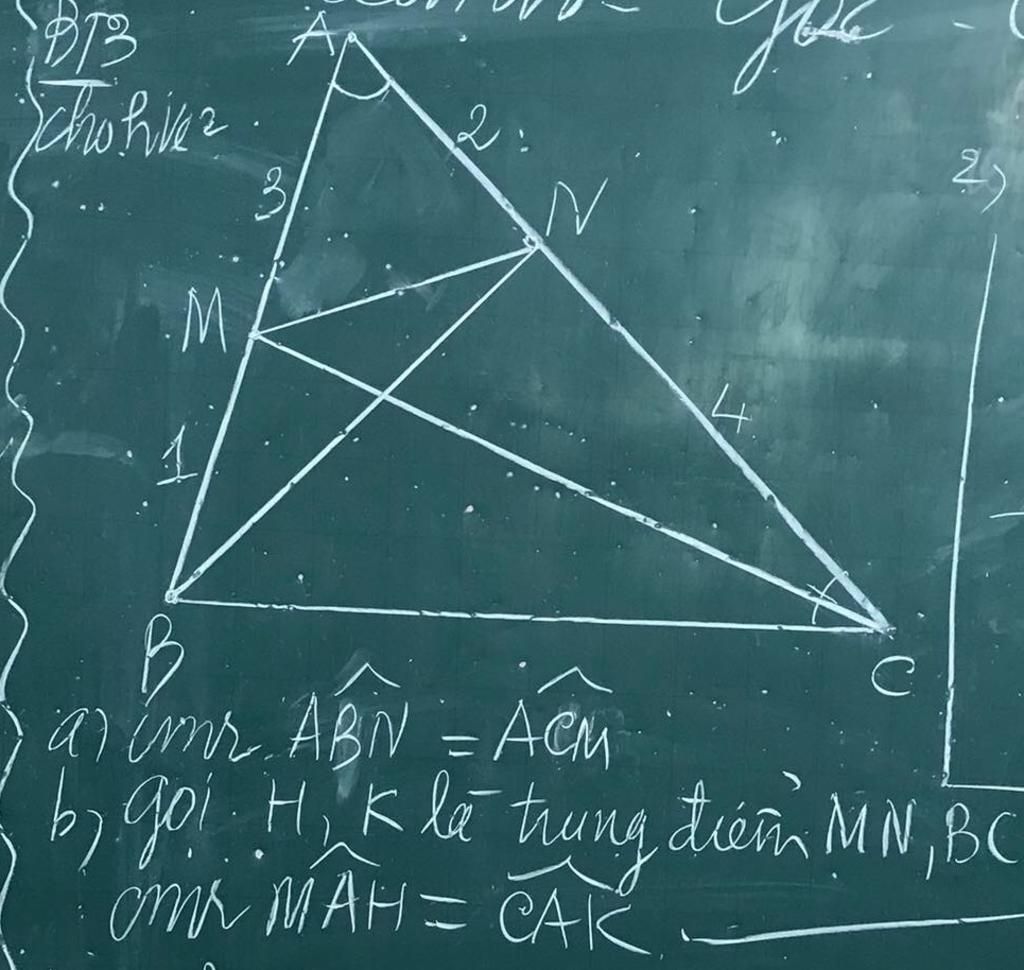 góc -
BT3
cho hvẽ
A
2
3
N
2)
M
4
1
B
C
a) cmr ABN = ACM
b) gọi H, K là trung điểm MN, BC
cmr MAH = CAK